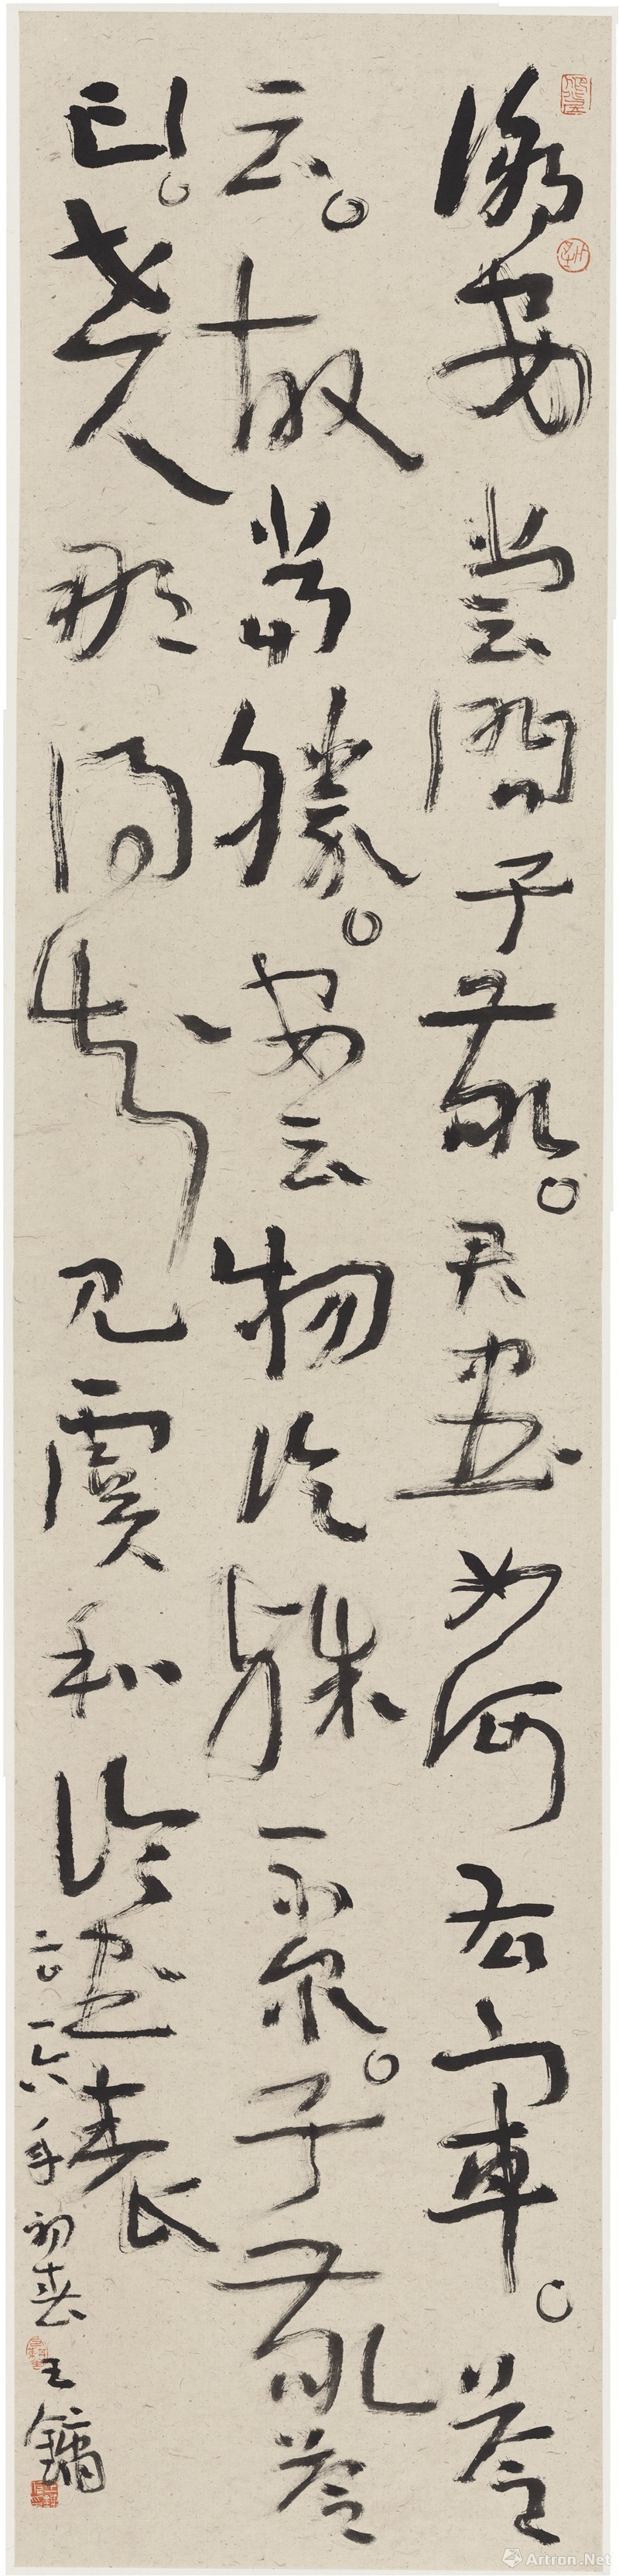 謝安尝問子敬。君書如何右軍。答
云。故當勝。安云物論殊不爾。子敬答
曰。世人那得知见虞和論書表
二〇一六年初春王鏞
Artron.Net